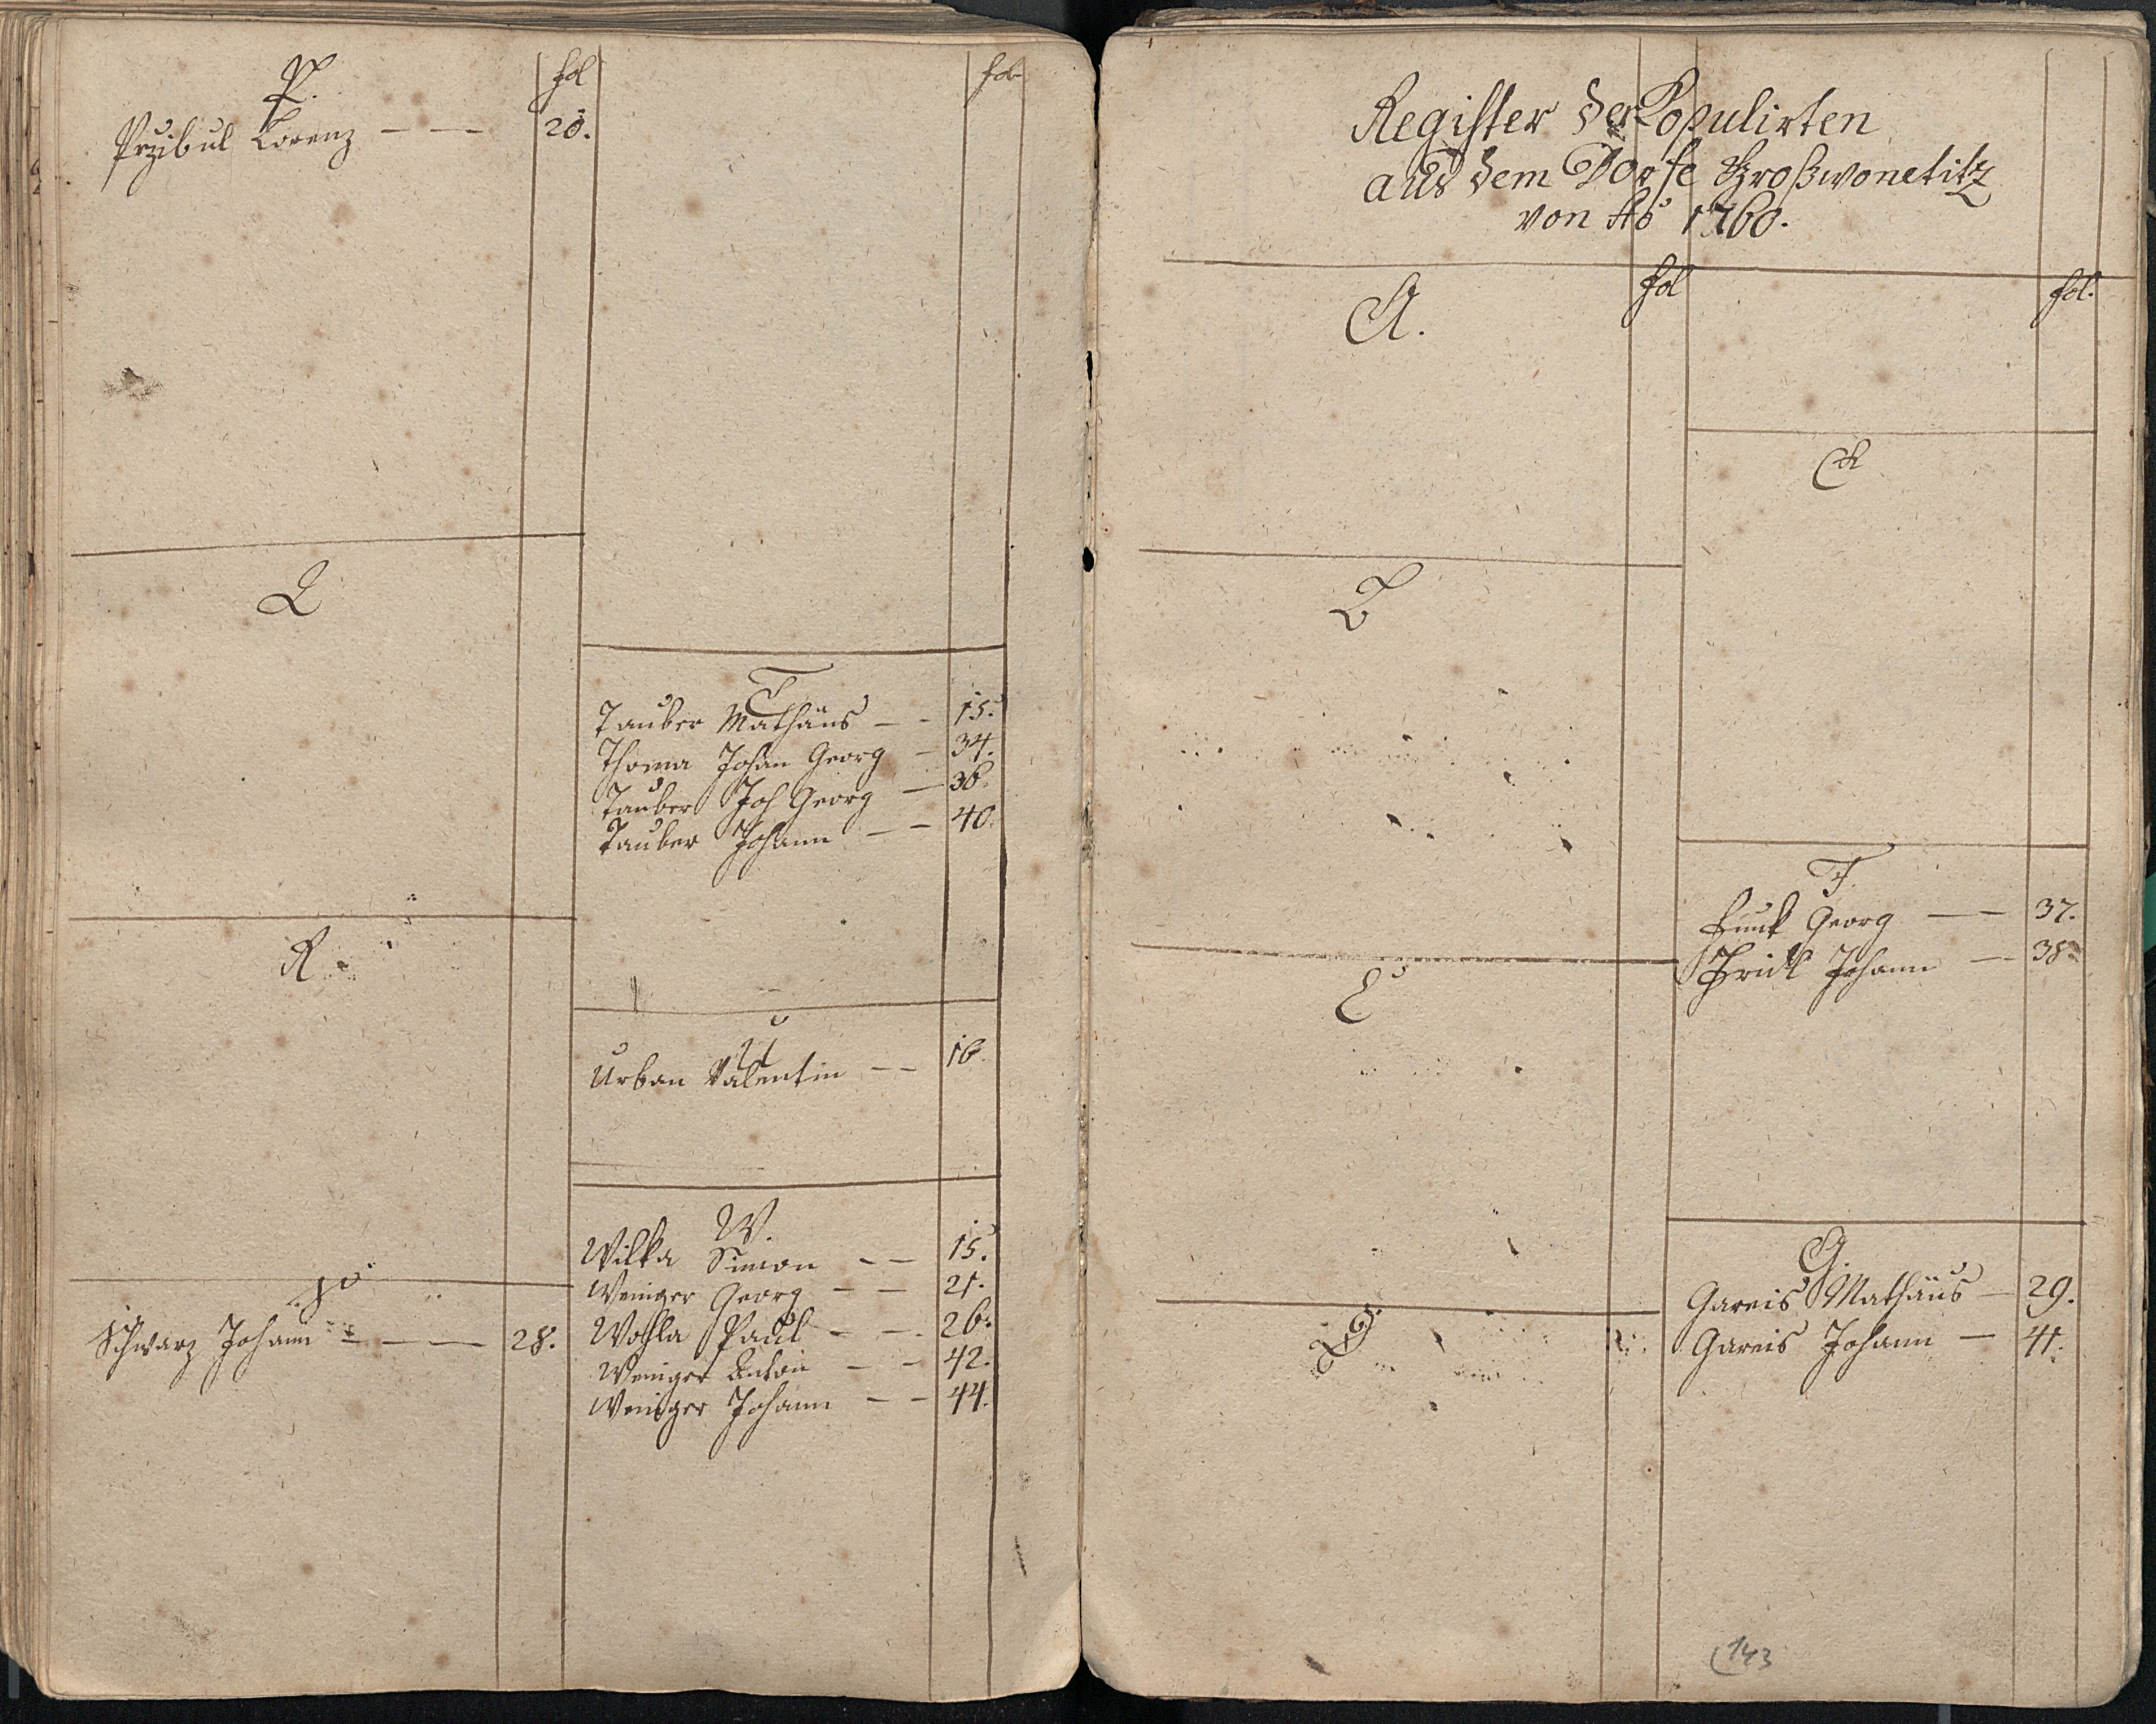 P.
fol
Przibul Lorenz — — 20.
Q
R.
S
Schwarz Johann — — — 28.
fol
T
Tauber Mathäus — - 15.
Thoma Johan Georg — 34.
Tauber Joh Georg — 36.
Tauber Johann — — 40.
U
Urban Valentin — — 16.
W.
Wilka Simon — — 15.
Weniger Georg — — 21.
Wohla Paul — — 26.
Weniger Antoni — — 42.
Weniger Johann — — 44.
Register der Copulirten
aus dem Dorfe Großwonetitz
von Ao 1760.
A.
fol
B
C
D
fol.
E
F.
Funk Georg — — 37.
Fridl Johann — 38
G.
Gareis Mathäus — 29.
Gareis Johann — 41.
143